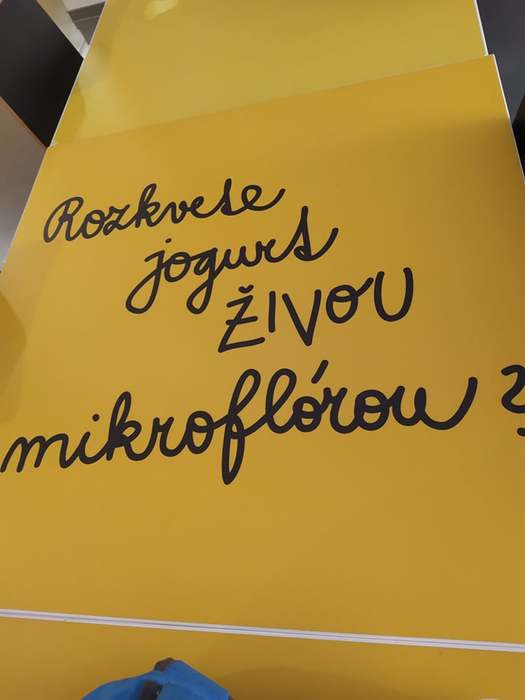 Rozkvete
jogurt
ŽIVOU
mikroflórou?